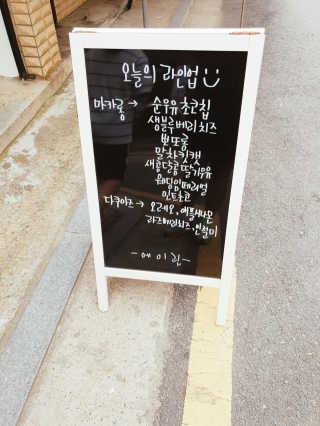 오늘의 라인업
마카롱 → 순우유 초코칩
생블루베리치즈
뽀또롱
말차킷캣
새콤달콤 딸기우유
웨딩임페리얼
민트초코
다쿠아즈 → 오레오, 애플시나몬
라즈베리치즈, 인절미